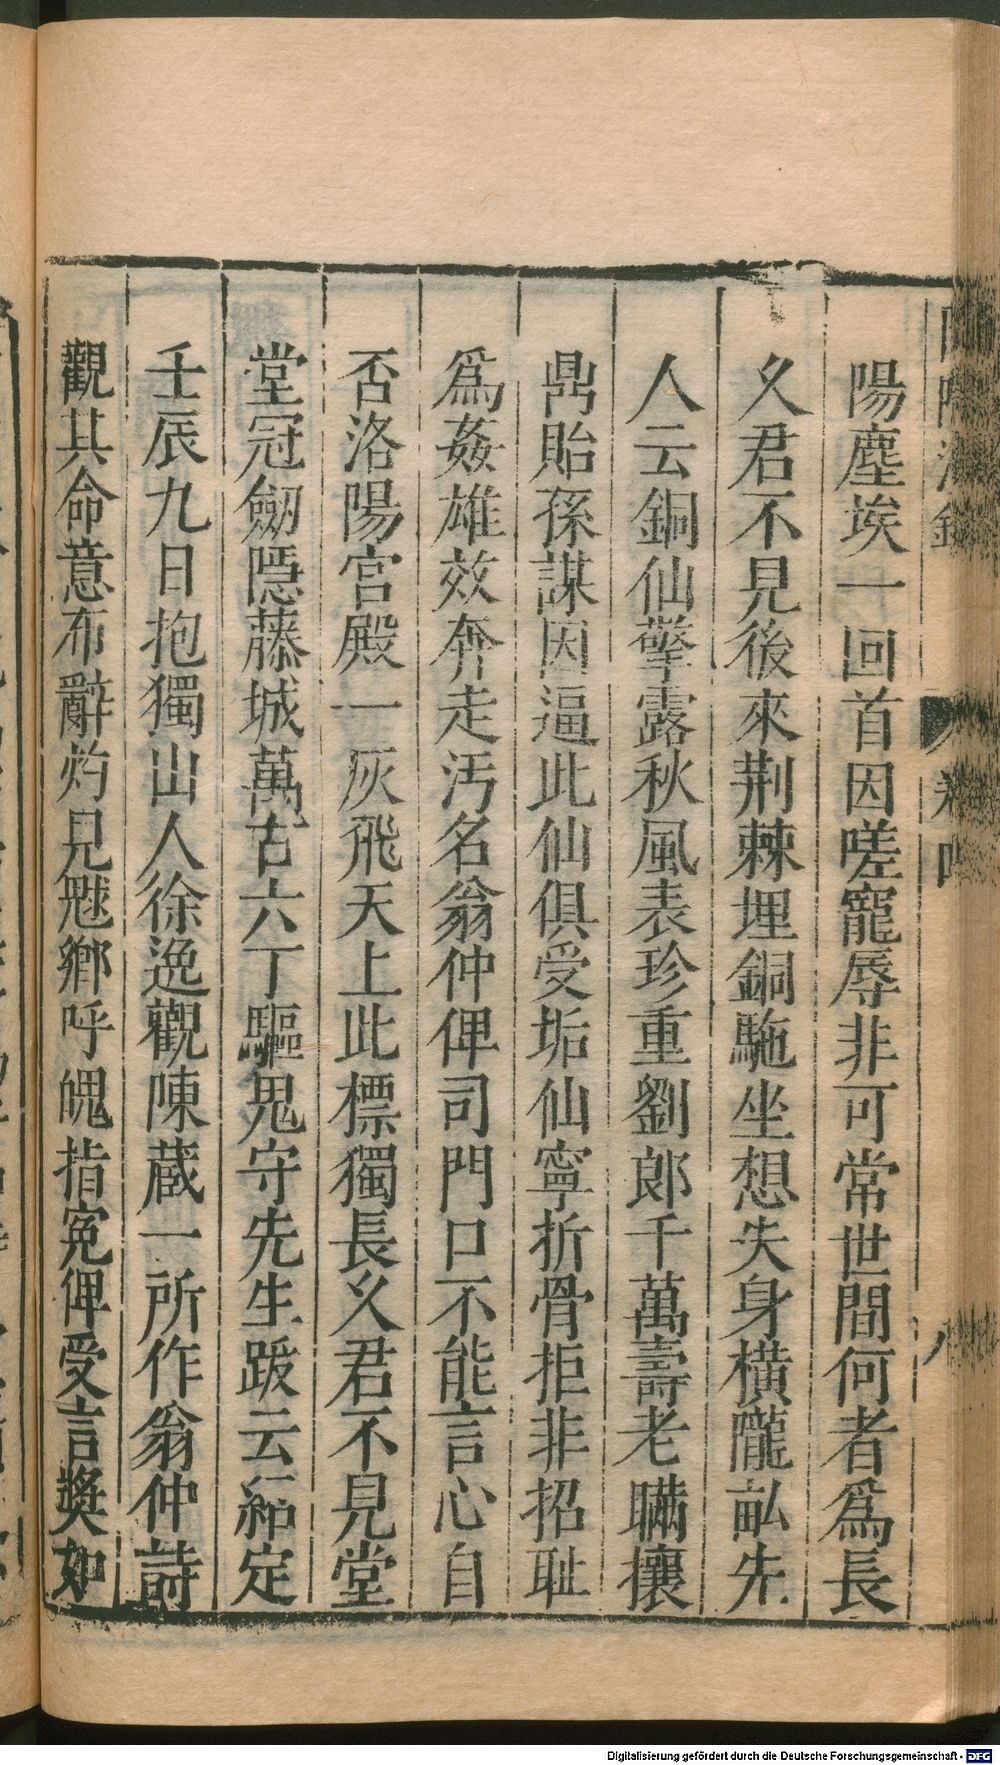 陽塵埃一回首因嗟寵辱非可常世間何者爲長
久君不見後來荆棘埋銅駞坐想失身橫隴畝先
人云銅仙擎露秋風表珍重劉郎千萬壽老瞞攘
鼎貽孫謀因逼此仙俱受垢仙寧折骨拒非招耻
爲姦雄效奔走汚名翁仲俾司門口不能言心自
否洛陽宮殿一灰飛天上此標獨長乆君不見堂
堂冠劒隱藤城萬古六丁驅鬼守先生跋云紹定
壬辰九日抱獨山人徐逸觀陳蔵一所作翁仲詩
觀其命意布辭灼見魃鄉呼魄指寃俾受言奬如
卷四
八
Digitalisierung gefördert durch die Deutsche Forschungsgemeinschaft - DFG